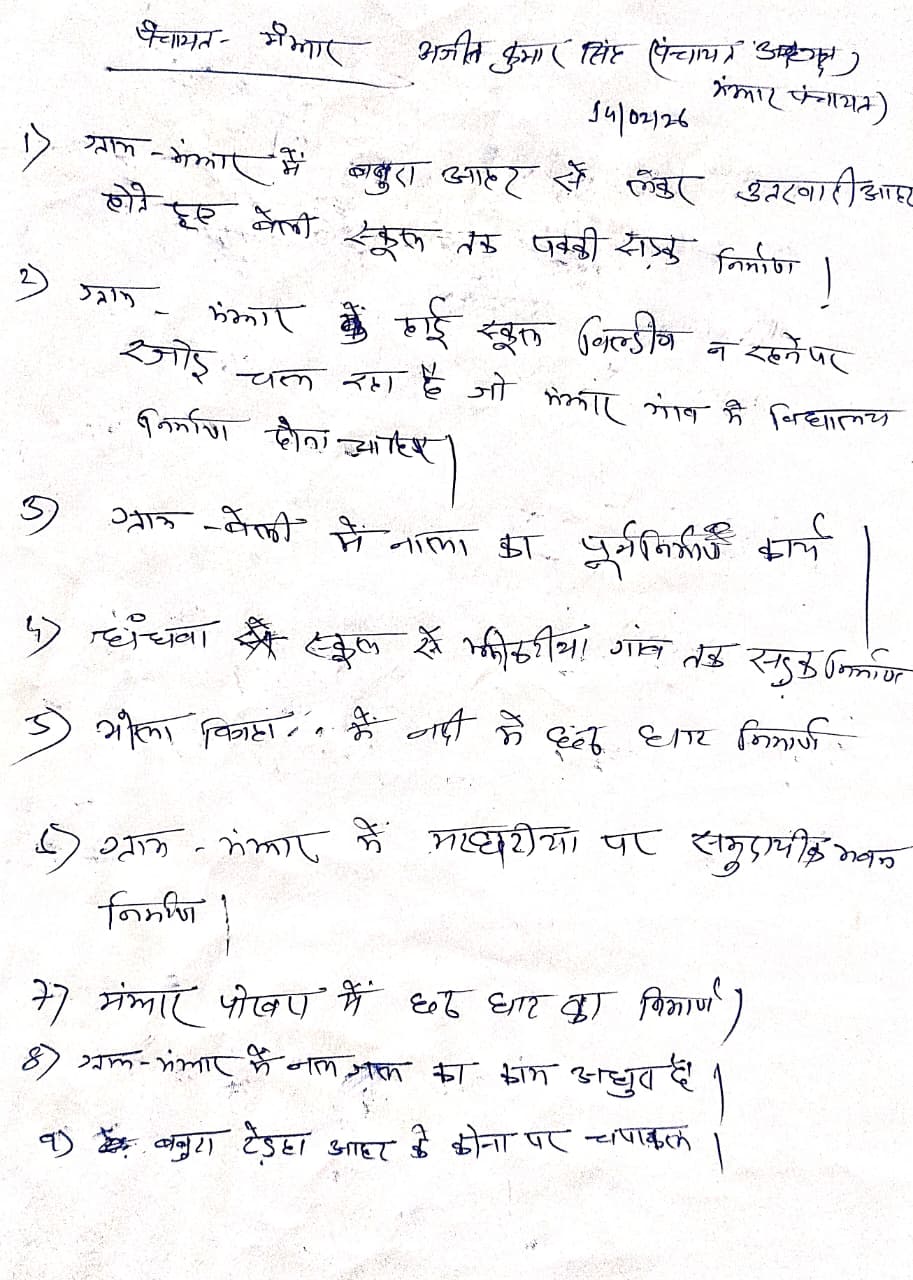 पंचायत - मंझार अजीत कुमार सिंह (पंचायत अध्यक्ष)
मंझार पंचायत)
14/02/26
1) ग्राम - मंझार में बबुरा आहर से लेकर उतरवारी आहर
होते हुए बेली स्कूल तक पक्की सड़क निर्माण |
2) ग्राम - मंझार के हाई स्कूल बिल्डींग न रहने पर
चल रहा है जो मंझार गांव में विद्यालय
निर्माण होना चाहिए |
3) ग्राम - बेली में नाला का पूर्ननिर्माण कार्य |
4) स्कूल से गांव तक सड़क निर्माण
5) में नदी में छठ घाट निर्माण
6) ग्राम - मंझार में पर समुदायीक भवन
निर्माण |
7) मंझार पोखरा में छठ घाट का निमार्ण )
8) ग्राम - मंझार में नल जल का काम अधुरा है |
9) बबुरा टेड़हा आहर के कोना पर चपाकल |